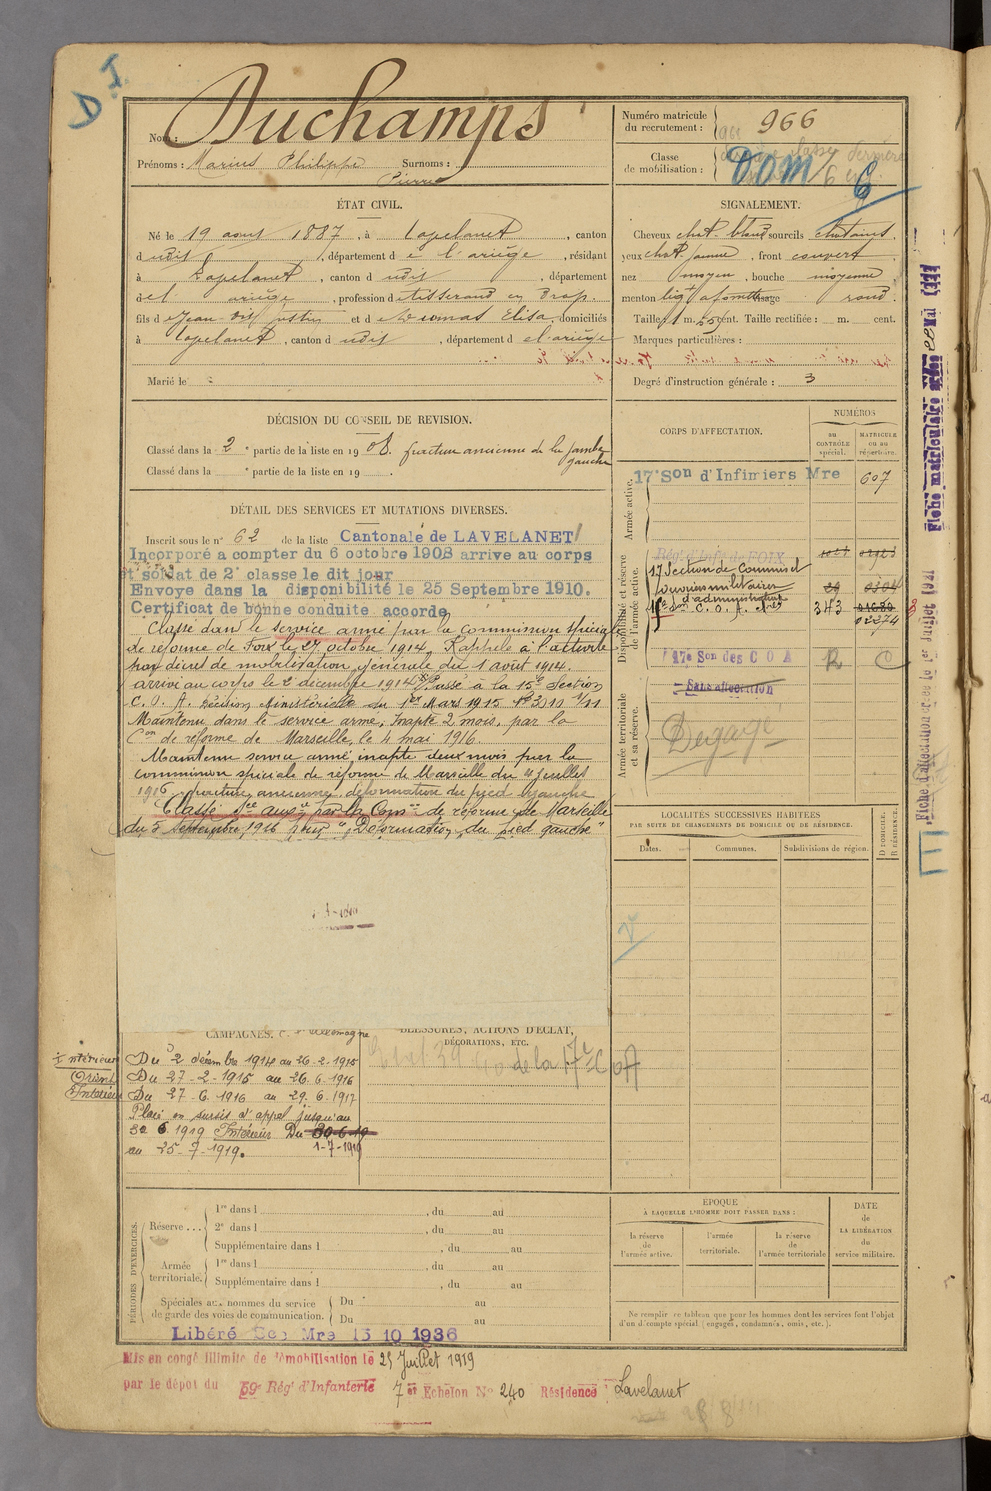 D I
Nom : Duchamps
Prénoms : Marius Philippe Surnoms :
Pierre
Numéro matricule du recrutement : 966
Classe de mobilisation : Dom
ÉTAT CIVIL.
Né le 19 aout 1887, à Lavelanet, canton
dudit, département de l'ariège, résidant
à Lavelanet, canton dudit, département
del ariège, profession de tisserand en drap.
fils de Jean et de Elisa, domiciliés
à Lavelanet, canton dudit, département de l'ariège
Marié le
SIGNALEMENT.
Cheveux chat. sourcils chatains,
yeux chat. jaune, front couvert
nez moyen, bouche moyenne
menton visage rond.
Taille : 1 m. 55 cent. Taille rectifiée : m. cent.
Marques particulières :
Degré d'instruction générale : 3
DÉCISION DU CONSEIL DE REVISION.
Classé dans la 2e partie de la liste en 1908. fracture ancienne de la jambe
gauche
Classé dans la e partie de la liste en 19 .
CORPS D'AFFECTATION.
NUMÉROS
au CONTRÔLE spécial.
MATRICULE ou au répertoire.
Armée active.
17e Son d'Infirmiers Mre 607
Disponibilité et réserve de l'armée active.
Rég. d'Inf. de FOIX
17 Section de Commis et
ouvriers militaires
d'administration
15e Son C. O. A. 343
02274
17e Son des C O A R C
Armée territoriale et sa réserve.
Sans affectation
Dégagé
DÉTAIL DES SERVICES ET MUTATIONS DIVERSES.
Inscrit sous le n° 62 de la liste Cantonale de LAVELANET
Incorporé a compter du 6 octobre 1908 arrive au corps
et soldat de 2e classe le dit jour
Envoye dans la disponibilité le 25 Septembre 1910.
Certificat de bonne conduite accorde
Classé dans le service armé par la commission spéciale
de réforme de Foix le 27 octobre 1914. Rappelé à l'activité
par décret de mobilisation générale du 1 août 1914.
arrivé au corps le 2 décembre 1914. Passé à la 15e Section
C. O. A. Décision Ministérielle du 1er Mars 1915
Maintenu dans le service armé, inapte 2 mois, par la
Con de réforme de Marseille, le 4 mai 1916.
Maintenu service armé inapte deux mois par la
commission spéciale de réforme de Marseille du 4 juillet
1916 fracture ancienne, déformation du pied gauche
Classé Sce auxre par la Comon de réforme de Marseille
du 5 Septembre 1916 pour "Déformation du pied gauche"
LOCALITÉS SUCCESSIVES HABITÉES
PAR SUITE DE CHANGEMENTS DE DOMICILE OU DE RÉSIDENCE.
Dates. Communes. Subdivisions de région. D DOMICILE. R RÉSIDENCE.
CAMPAGNES. C. l'Allemagne
Intérieur Du 2 décembre 1914 au 26-2-1915
Orient Du 27-2-1915 au 26.6-1916
Intérieur Du 27-6-1916 au 29.6-1917
Placé en sursis d'appel jusqu'au
30 6 1919 Intérieur Du 30-6-19
au 25-7-1919. 1-7-1919
BLESSURES, ACTIONS D'ÉCLAT,
DÉCORATIONS, ETC.
de la 17e COA
PÉRIODES D'EXERCICES.
Réserve...
1re dans l , du au
2e dans l , du au
Supplémentaire dans l , du au
Armée territoriale.
1re dans l , du au
Supplémentaire dans l , du au
Spéciales aux hommes du service
de garde des voies de communication.
Du au
Du au
EPOQUE
À LAQUELLE L'HOMME DOIT PASSER DANS :
la réserve de l'armée active.
l'armée territoriale.
la réserve de l'armée territoriale
DATE de LA LIBÉRATION du service militaire.
Ne remplir ce tableau que pour les hommes dont les services font l'objet
d'un décompte spécial (engagés, condamnés, omis, etc.).
Libéré Sce Mre 15 10 1936
Mis en congé illimité de démobilisation le 25 Juillet 1919
par le dépot du 59e Rég' d'Infanterie 7e Echelon N° 240 Résidence : Lavelanet
Fiche d'affectation créée le 1er Juillet 1921